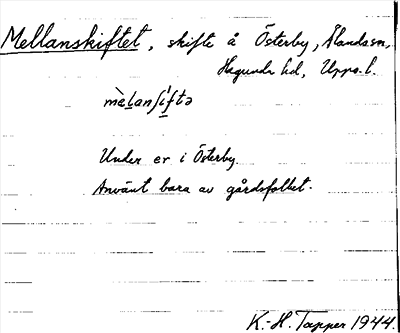 Mellanskiftet, skifte å Österby, Ålands sn,
Hagunda hd, Upps. l.
mèlanʃíftə
Under er i Österby.
Använt bara av gårdsfolket.
K.-H. Tapper 1944.